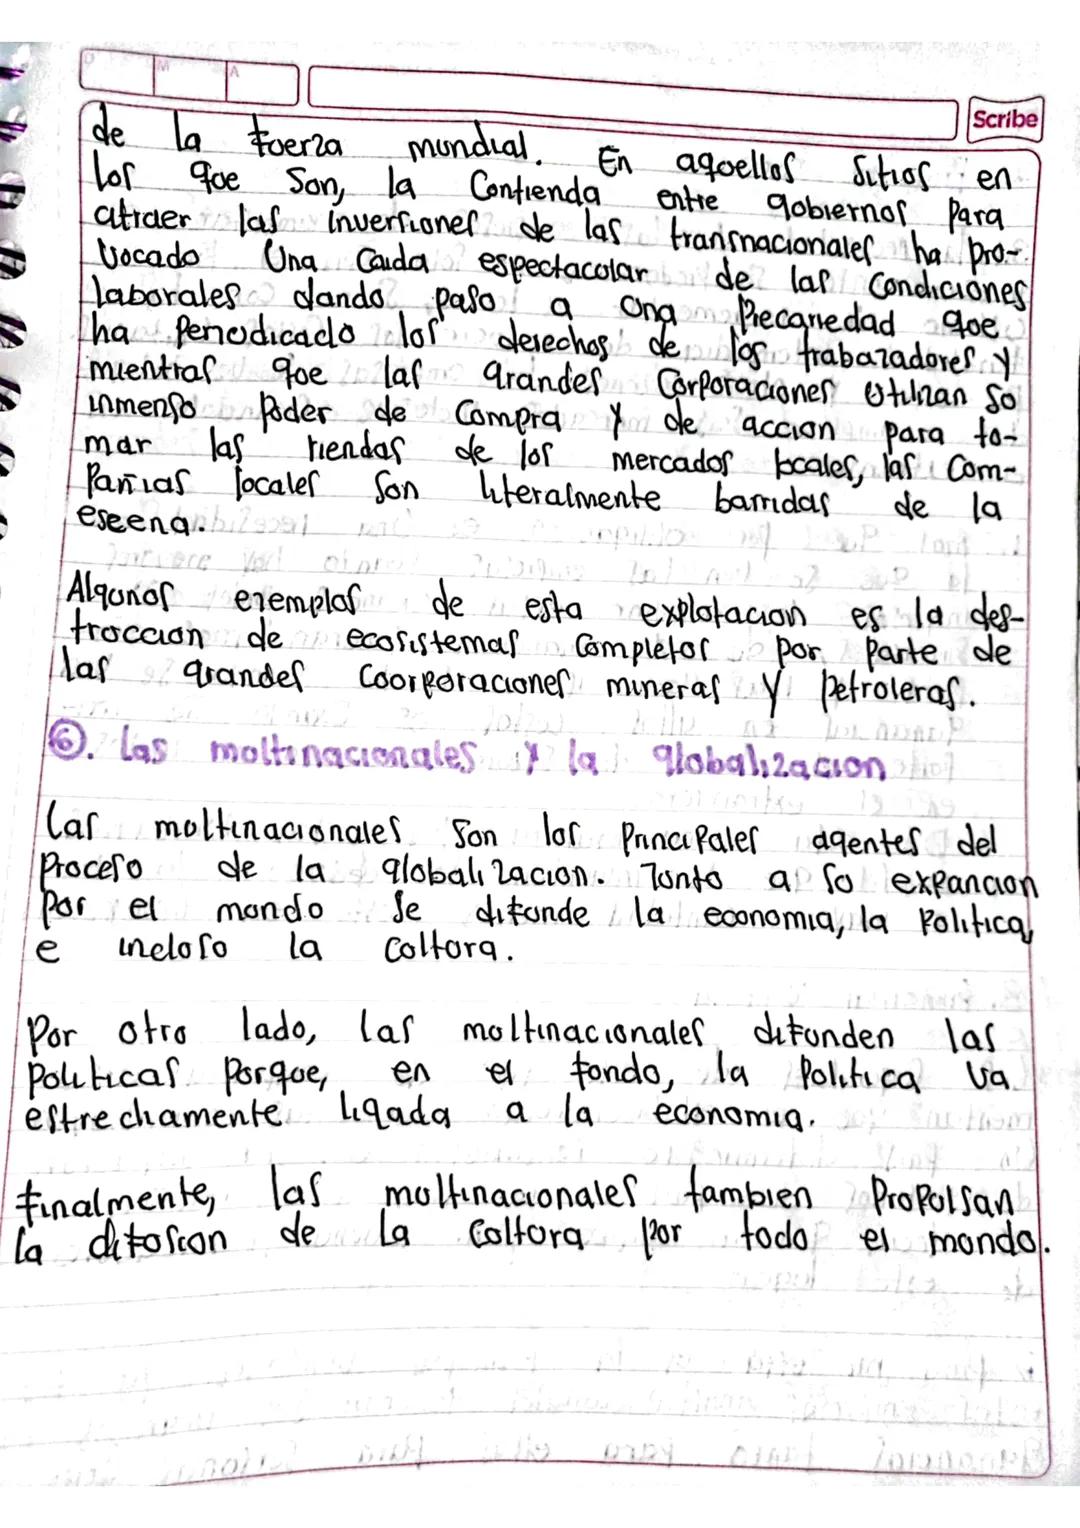 D M A
Scribe
de la fuerza mundial. En aquellos sitios en
los que son, la contienda entre gobiernos para
atraer las inversiones de las transnacionales ha pro-
vocado una caida espectacular de las condiciones
laborales dando paso a una precariedad que
ha perjudicado los derechos de los trabajadores y
mientras que las grandes corporaciones utilizan su
inmenso poder de compra y de accion para to-
mar las riendas de los mercados locales, las com-
pañias locales son literalmente barridas de la
escena.
Algunos ejemplos de esta explotacion es la des-
truccion de ecosistemas completos por parte de
las grandes coorporaciones mineras y petroleras.
6. las multinacionales y la globalizacion
Las multinacionales son los principales agentes del
proceso de la globalizacion. Junto a su expancion
por el mundo se difunde la economia, la politica,
e incluso la cultura.
Por otro lado, las multinacionales difunden las
politicas porque, en el fondo, la politica va
estrechamente ligada a la economia.
finalmente, las multinacionales tambien propulsan
la difusion de la cultura por todo el mundo.